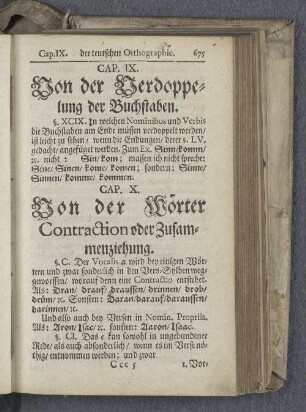 Cap. IX. der teutschen Orthographie. 675
CAP. IX.
Von der Verdoppe-
lung der Buchstaben.
§. XCIX. In welchen Nominibus und Verbis
die Buchstaben am Ende müssen verdoppelt werden/
ist leicht zu sehen/ wenn die Endungen/ derer §. LV.
gedacht/ angefüget werden. Zum Ex. Sinn/komm/
ꝛc. nicht: Sin/kom; massen ich nicht spreche:
Sine/ Sinen/kome/komen; sondern: Sinne/
Sinnen/ komme/ kommen.
CAP. X.
Von der Wörter
Contraction oder Zusam-
menziehung.
§. C. Der Vocalis a wird bey einigen Wör-
tern und zwar sonderlich in den Vers-Sylben weg-
geworffen/ worauf denn eine Contractio entstehet.
Als: Dran/ drauf/ draussen/ drinnen/ drob/
drüm/ ꝛc. Sonsten: Daran/darauf/daraussen/
darinnen/ ꝛc.
Und also auch bey Versen in Nomin. Propriis.
Als: Aron/ Isac/ ꝛc. sonsten: Aaron/ Isaac.
§. CI. Das e kan sowohl in ungebundener
Rede/ als auch absonderlich/ wenn es im Verse nö-
thig/ entnommen werden; und zwar
Ccc 5 1. Vor-